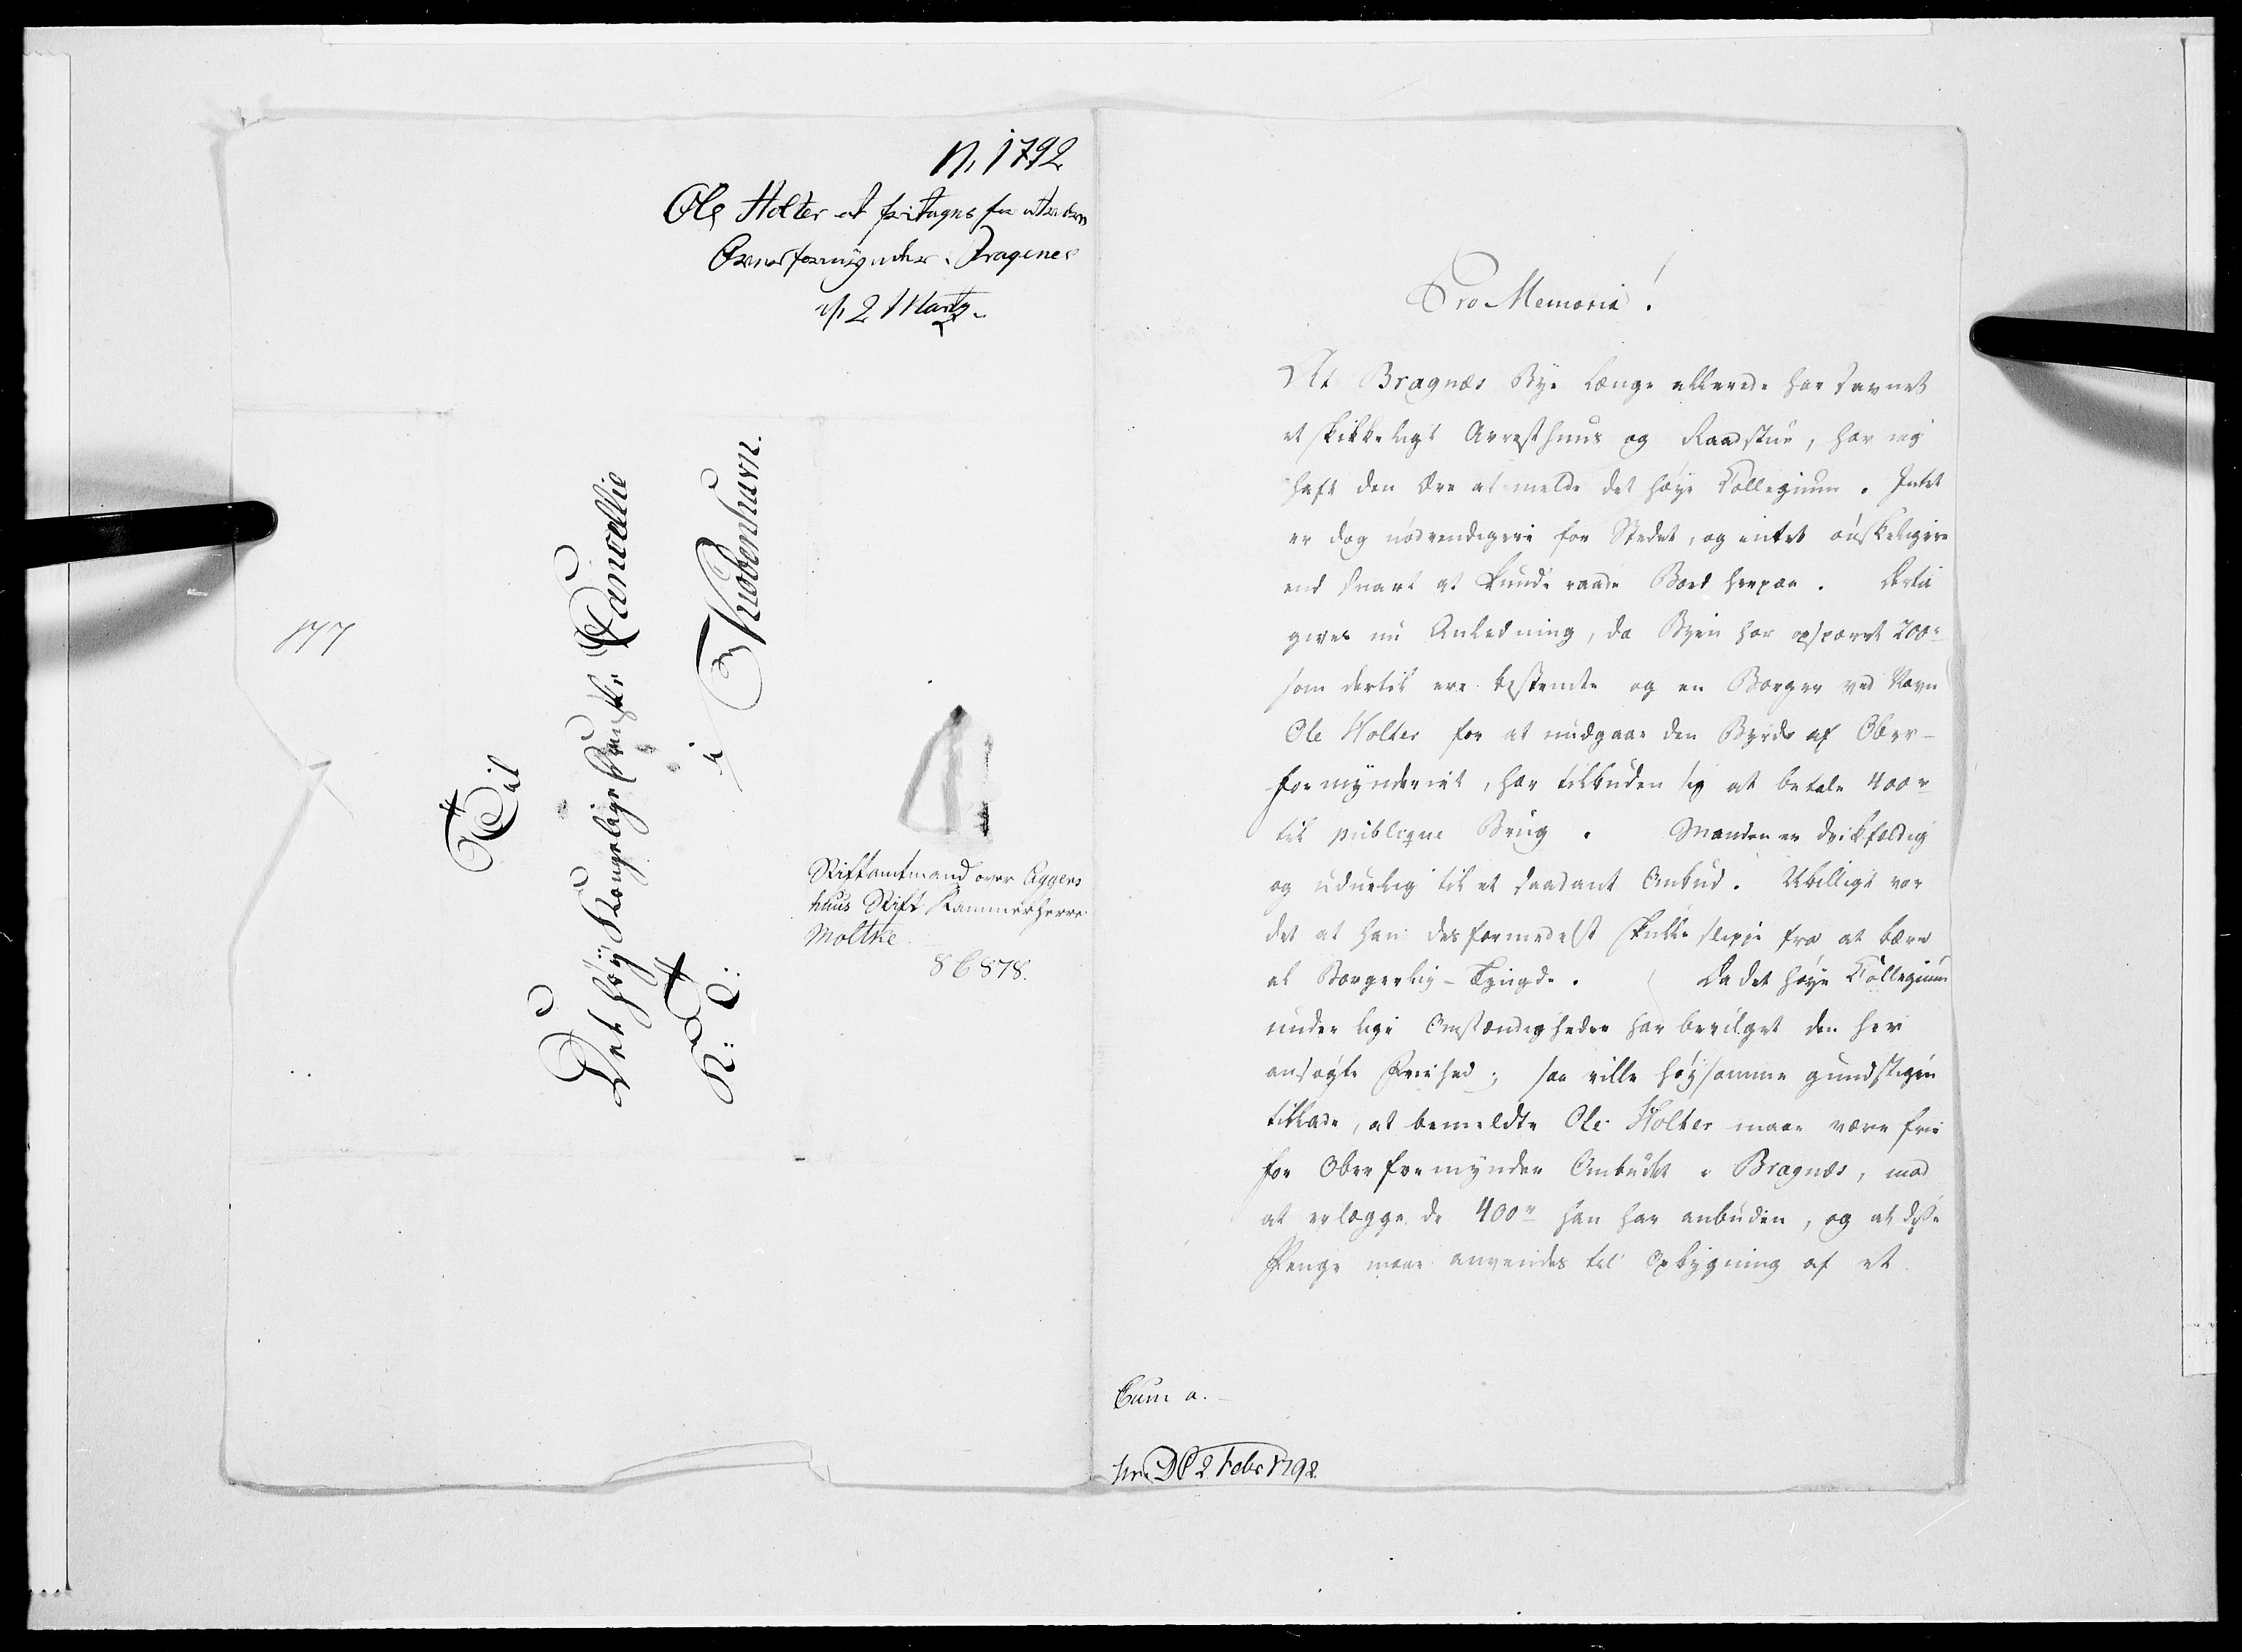 N. 1792
Ole Holter at fritages for at være
Overformynder i Bragenes
2 Martz
177
Til
Det høy Kongelige Danske Cancellie
i Kiøbenhavn.
K: T:
Stiftamtmand over Aggers
huus Stift Kammerherre
Moltke
8 C 878.
Pro Memoria!
At Bragnæs Bye længe allerede har savnet
et skikkeligt Arresthuus og Raadstue, har jeg
haft den Ære at melde det høye Collegium. Intet
er dog nødvendigere for Stedet, og intet ønskeligere
end snart at kunde raade Bod herpaa. Dertil
gives nu Anledning, da Byen har opsparet 200 r
som dertil ere bestemte og en Borger ved Navn
Ole Holter for at undgaae den Byrde af Over-
formynderiet, har tilbuden sig at betale 400 r
til publiqve Brug. Manden er
og uduelig til et saadant Ombud. Ubilligt var
det at han desformedelst skulle slippe fra at bære
al Borgerlig-Tyngde. Da det høye Collegium
under lige Omstændigheder har bevilget den her
ansøgte Friehed; saa ville høysamme gunstigen
tillade, at bemeldte Ole Holter maae være frie
for Overformynder Ombudet i Bragnæs, mod
at erlægge de 400 r han har anbuden, og at disse
Penge maae anvendes til Opbygning af et
Cum a.
pr. DC 2 Febr 1792